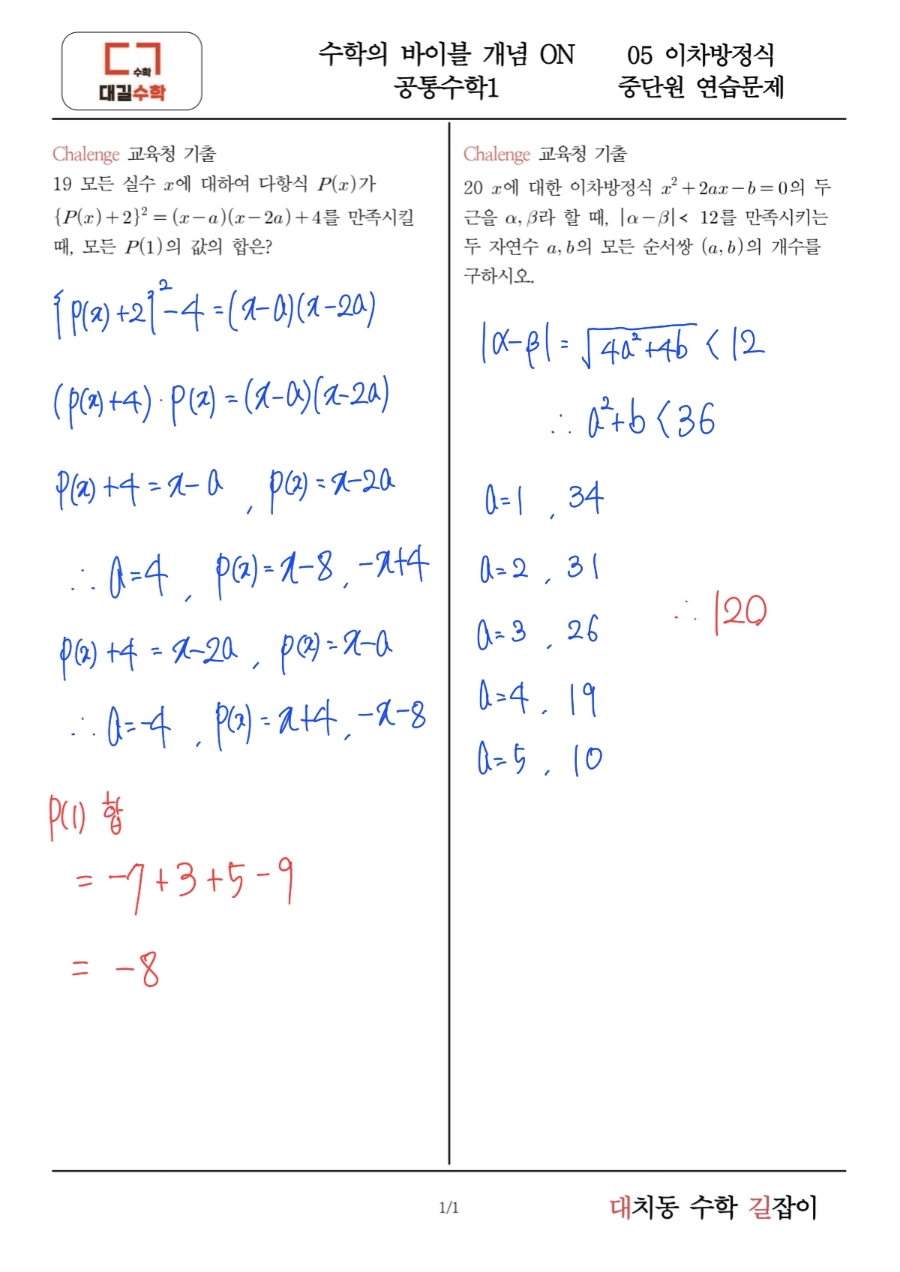 수학
대길수학
수학의 바이블 개념 ON
공통수학1
05 이차방정식
중단원 연습문제
Chalenge 교육청 기출
19 모든 실수 x에 대하여 다항식 P(x)가
{P(x)+2}²=(x-a)(x-2a)+4를 만족시킬
때, 모든 P(1)의 값의 합은?
{P(x)+2}²-4=(x-a)(x-2a)
(P(x)+4)·P(x)=(x-a)(x-2a)
P(x)+4=x-a , P(x)=x-2a
∴ a=4 , P(x)=x-8, -x+4
P(x)+4=x-2a, P(x)=x-a
∴ a=-4 , P(x)=x+4, -x-8
P(1) 합
= -7+3+5-9
= -8
Chalenge 교육청 기출
20 x에 대한 이차방정식 x²+2ax-b=0의 두
근을 α, β라 할 때, |α-β|< 12를 만족시키는
두 자연수 a, b의 모든 순서쌍 (a, b)의 개수를
구하시오.
|α-β|=√4a²+4b < 12
∴ a²+b<36
a=1 , 34
a=2 , 31
a=3 , 26
a=4 , 19
a=5 , 10
∴ 120
1/1
대치동 수학 길잡이